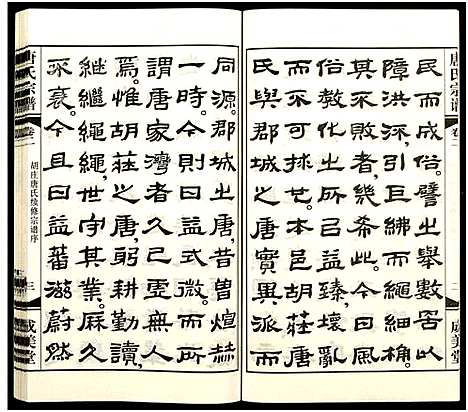 唐氏宗谱
卷二
二
咸美堂
民而成俗。譬之舉數罟以
障洪流,引巨紼而繩細桷。
其不敗者,幾希此。今日風
俗 之 益臻壞亂
而不可 胡莊唐
氏與郡城之唐,實異派而
同源。郡城之唐,昔曾煊赫
一時。今則日益式微。而所
謂唐家灣者,已虛無人
焉。惟胡莊之躬耕勤讀,
繼繼繩繩,世守其業。厤久
不衰。今且日益蕃滋蔚然
唐氏宗谱
卷二
胡庄唐氏续修宗谱序
三
咸美堂